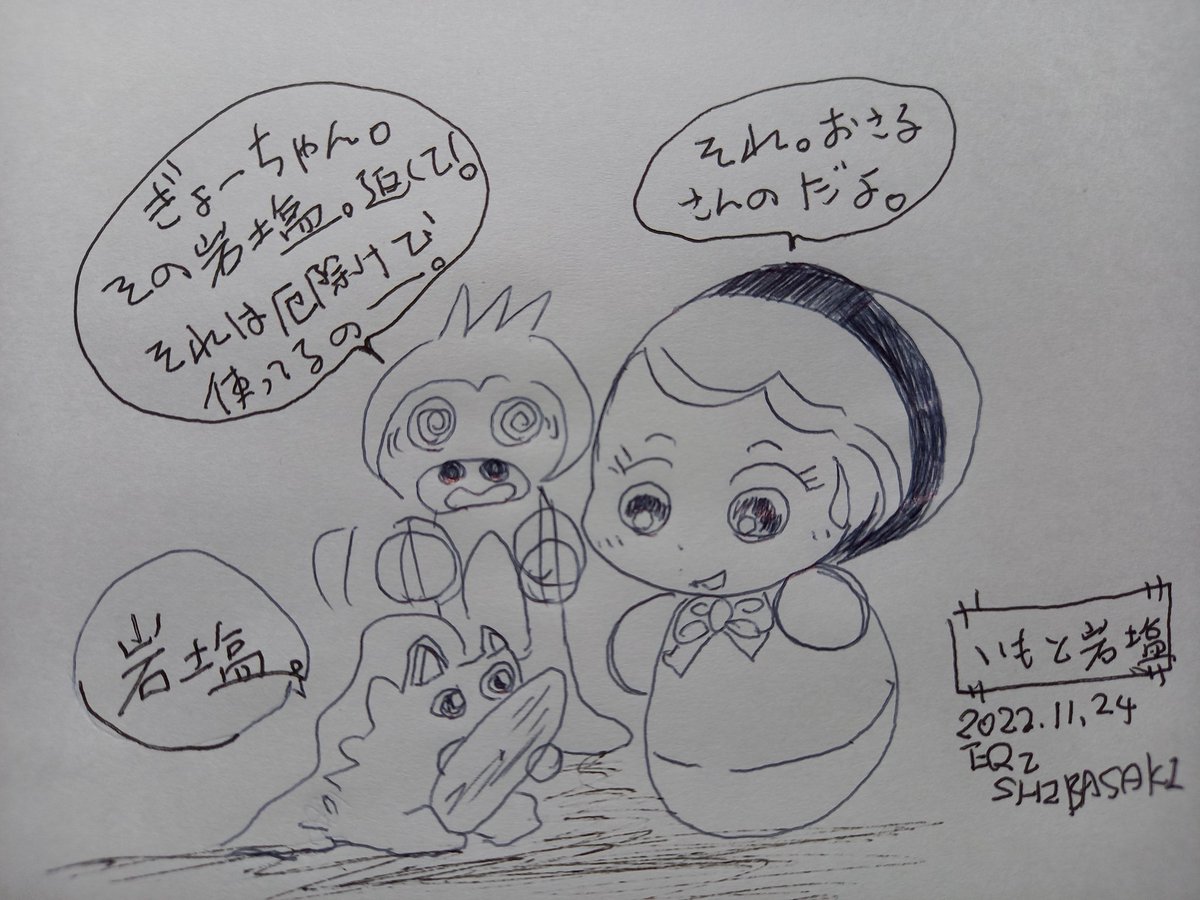 ぎょーちゃん。
その岩塩。返して!。
それは厄除けで
使ってるのー。
それ。おさる
さんのだよ。
岩塩。
いもと岩塩
2022.11.24
SHIBASAKI